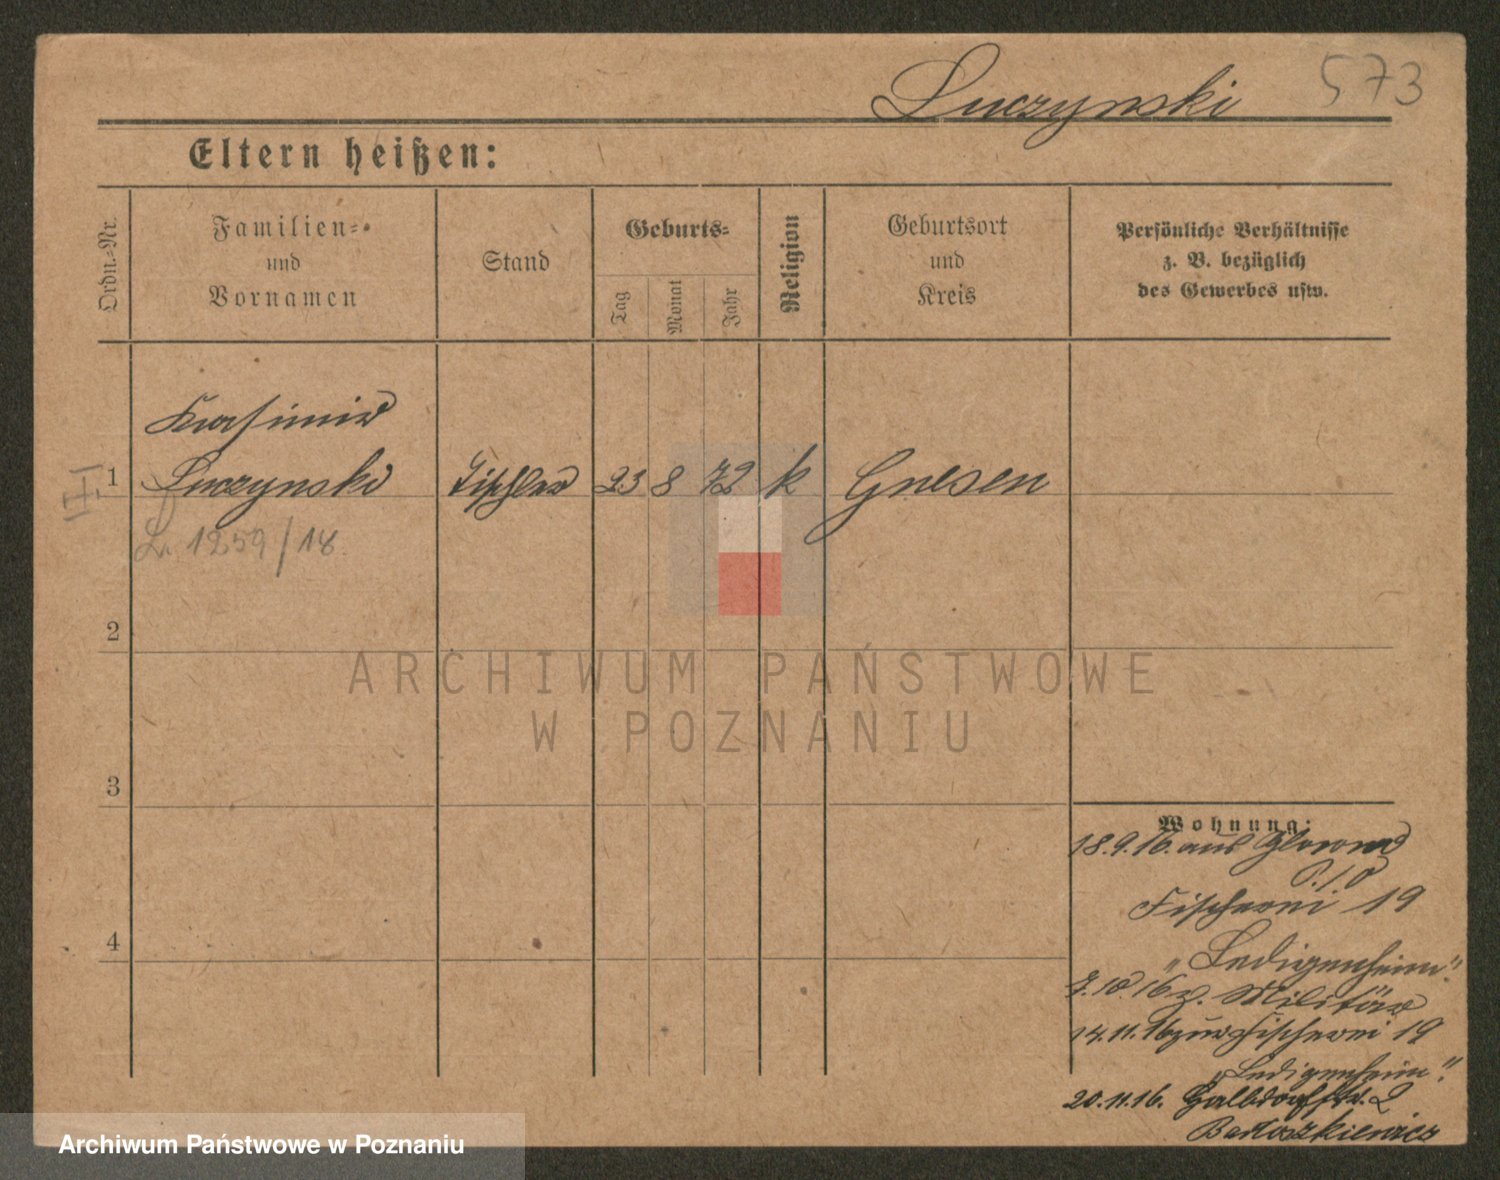 Luczynski 573
Eltern heißen:
Ordn.-Nr.
Familien-
und
Vornamen
Stand
Geburts-
Tag
Monat
Jahr
Religion
Geburtsort
und
Kreis
Persönliche Verhältnisse
z. B. bezüglich
des Gewerbes usw.
Kasimir
1 Luczynski Tischler 23 8 72 k Gnesen
L. 1259/18
2
3
4
Wohnung:
18.9.16. aus Glowno
Fischerei 19
"Ledigenheim".
7.10.16 z. Militär
14.11.16 zur Fischerei 19
"Ledigenheim".
20.11.16. Halbdorfstr. 2
Bartoszkiewicz
ARCHIWUM PAŃSTWOWE
W POZNANIU
Archiwum Państwowe w Poznaniu